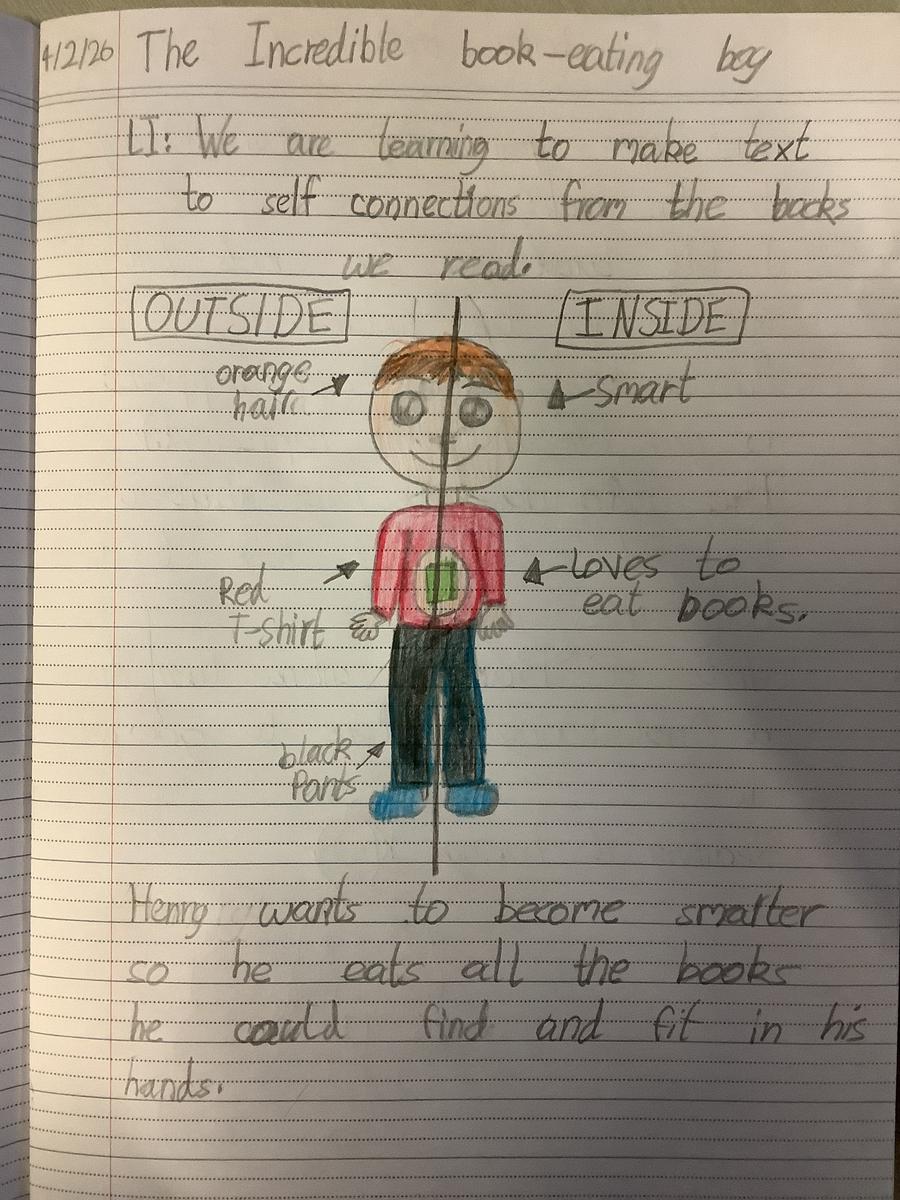 4/2/26 The Incredible book-eating boy
LI: We are learning to make text
to self connections from the books
we read.
OUTSIDE INSIDE
orange
hair
Smart
Red
T-shirt
Loves to
eat books.
black
Pants
Henry wants to become smarter
so he eats all the books
he could find and fit in his
hands.